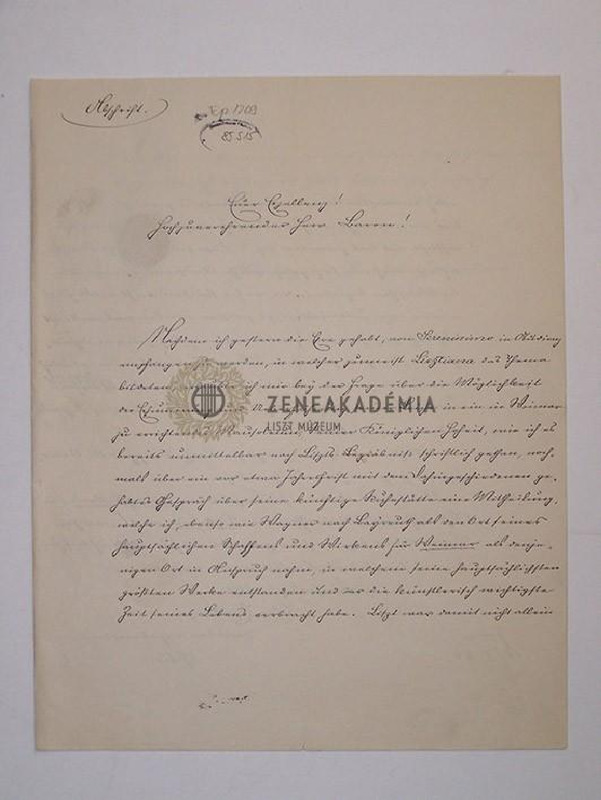 Abschrift.
Ep 1709
85.515
Euer Excellenz!
Hochzuverehrender Herr Baron!
Nachdem ich gestern die Ehre gehabt, vom Serenissimo in Audienz
empfangen zu werden, in welcher zumeist Lisztiana das Thema
bildeten, ich mir bey der Frage über die Möglichkeit
der in ein in Weimar
zu errichtendes Mausoleum, Seiner Königlichen Hoheit, wie ich es
bereits unmittelbar nach Liszts Begräbniß schriftlich gethan, noch-
mals über ein vor etwa Jahresfrist mit dem Dahingeschiedenen ge-
habtes Gespräch über seine künftige Ruhestätte eine Mittheilung,
welche ich, ebenso wie Wagner nach Bayreuth als den Ort seines
hauptsächlichen Schaffens und Wirkens für Weimar als denje-
nigen Ort in Anspruch nahm, in welchem seine hauptsächlichsten
größten Werke entstanden und er die künstlerisch wichtigste
Zeit seines Lebens verbracht habe. Liszt war damit nicht allein
ZENEAKADÉMIA
LISZT MÚZEUM